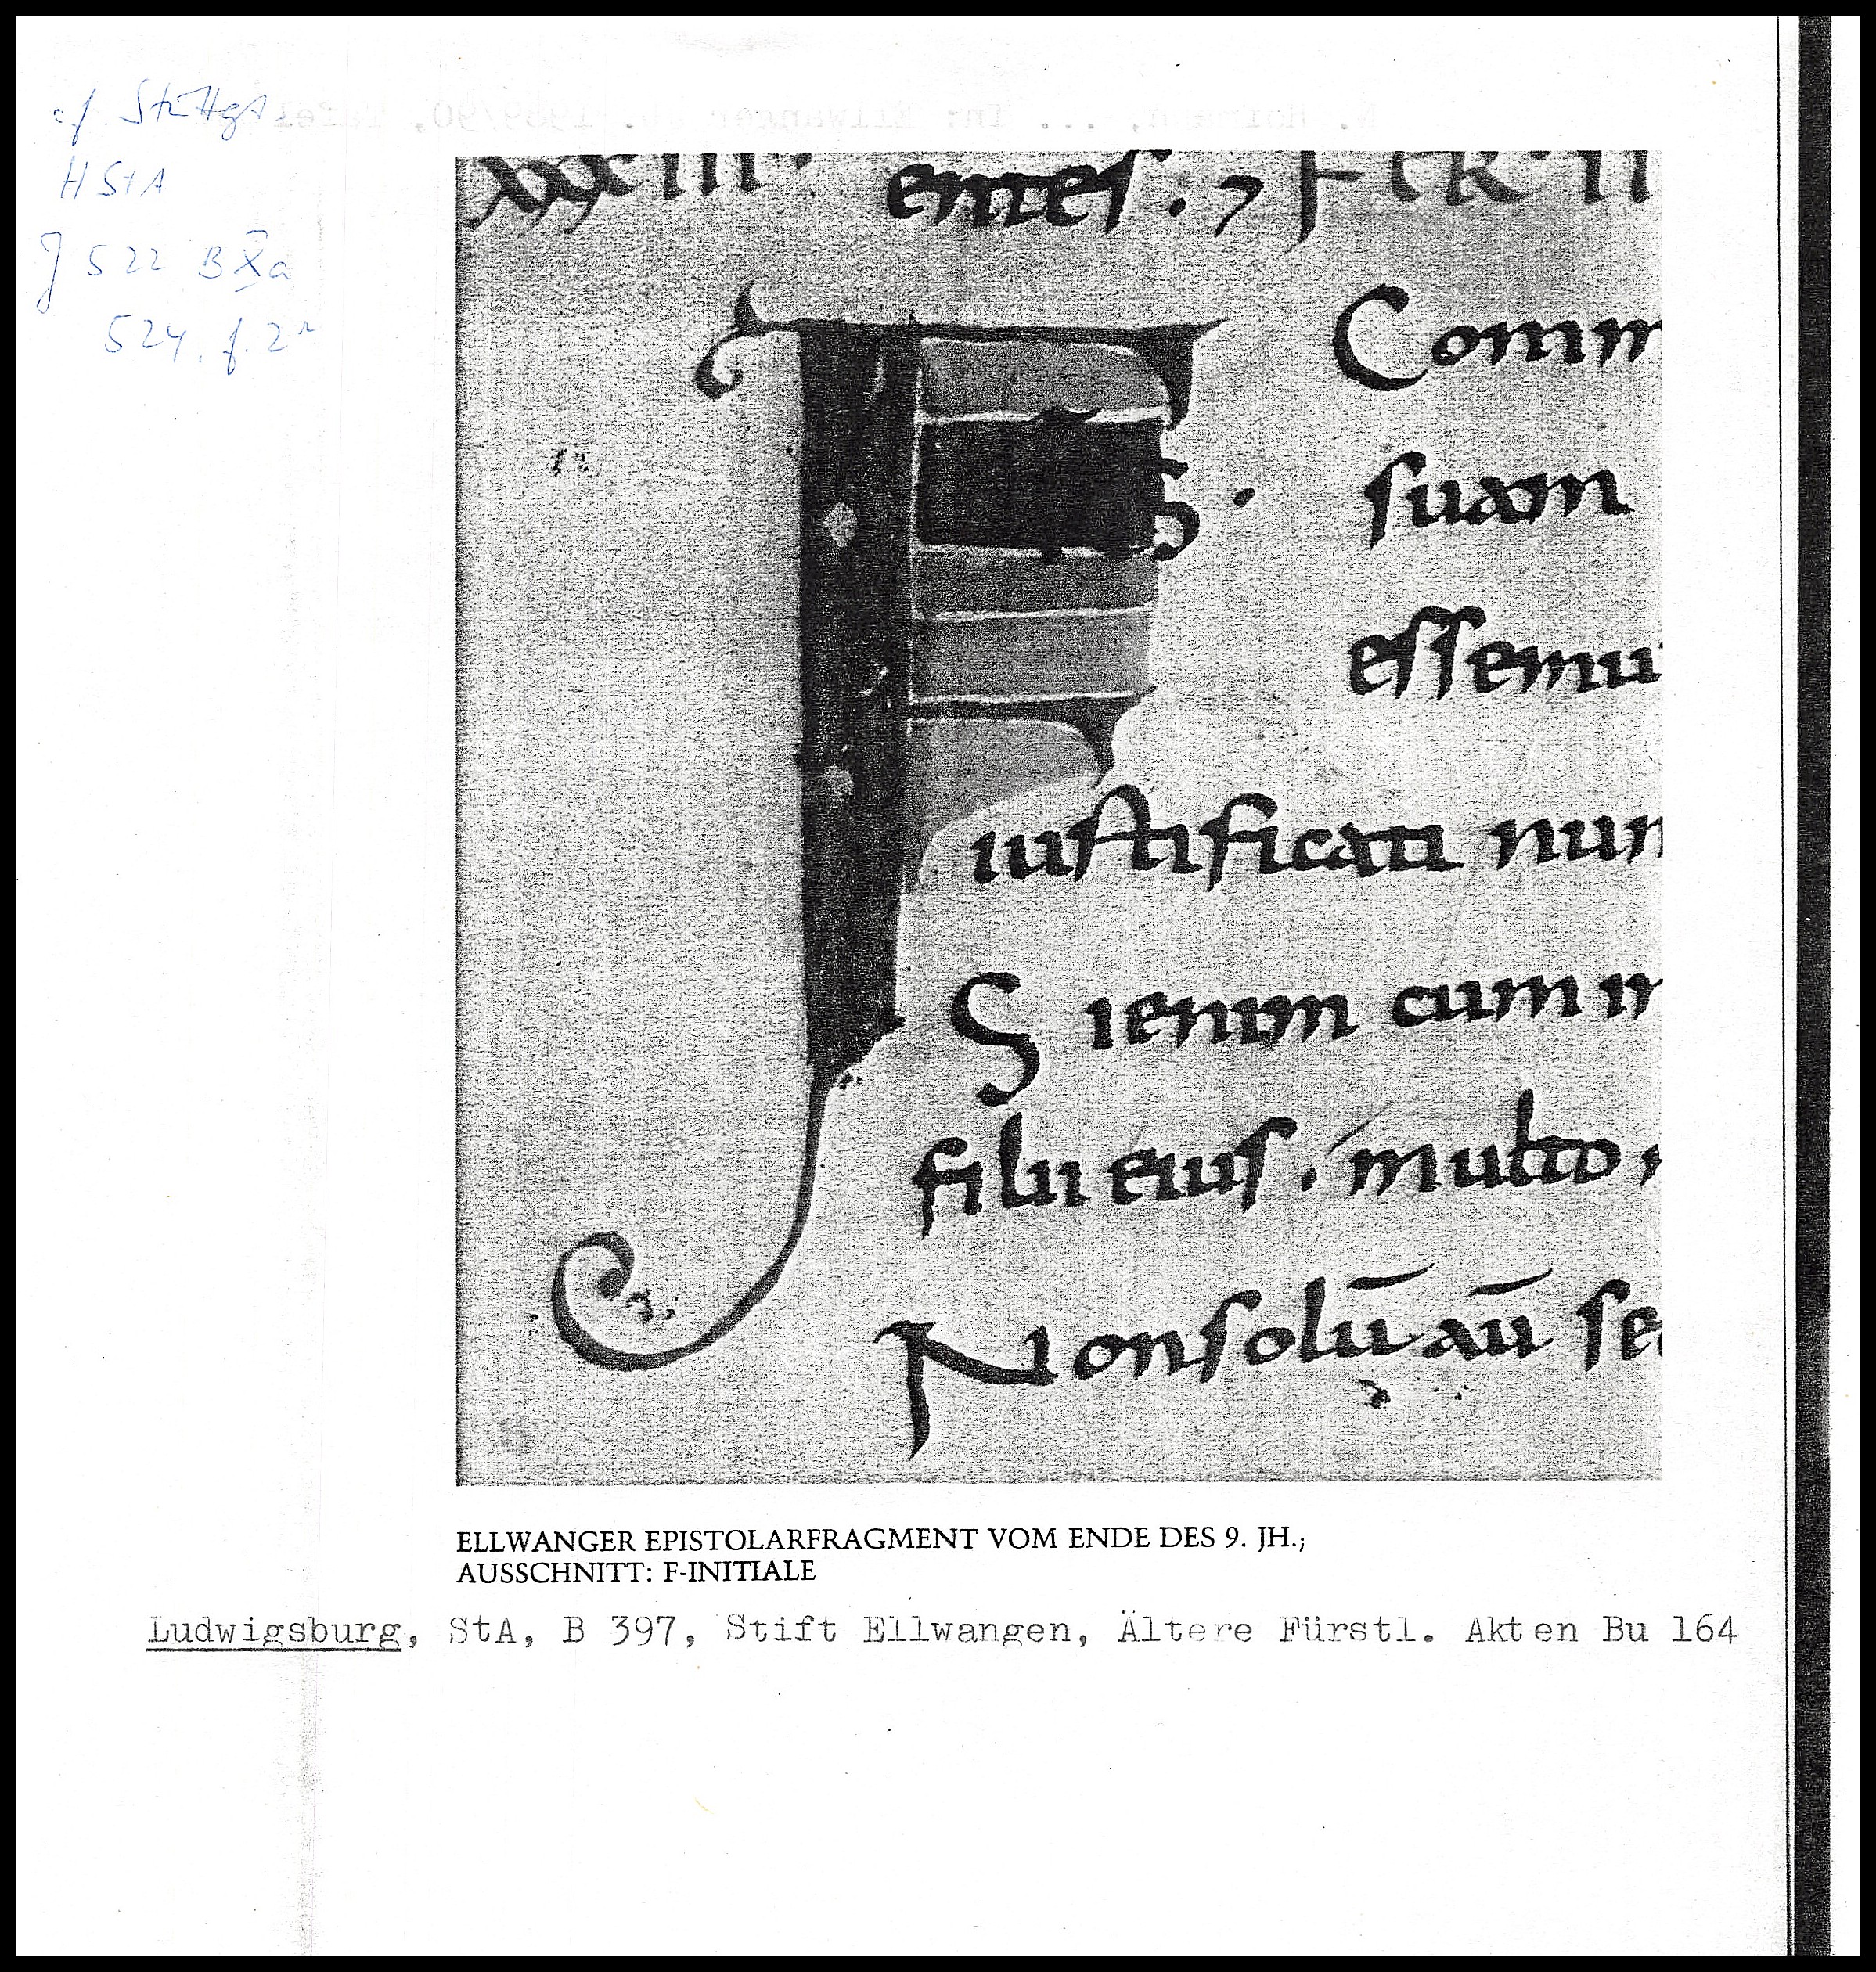 cf. Stuttgt
HStA
J 522 B X a
524, f. 2r
xxxiiii. entes. ; FER II
F RS. Comm
suam
essemu
iustificati nun
Si enim cum in
filii eius. multo
Non solū aū se
ELLWANGER EPISTOLARFRAGMENT VOM ENDE DES 9. JH.;
AUSSCHNITT: F-INITIALE
Ludwigsburg, StA, B 397, Stift Ellwangen, Ältere Fürstl. Akten Bu 164